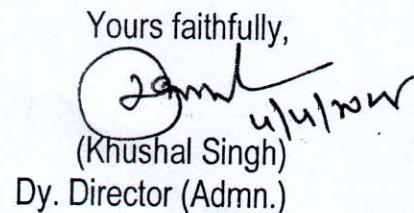 Yours faithfully,
(Khushal Singh)
Dy. Director (Admn.)